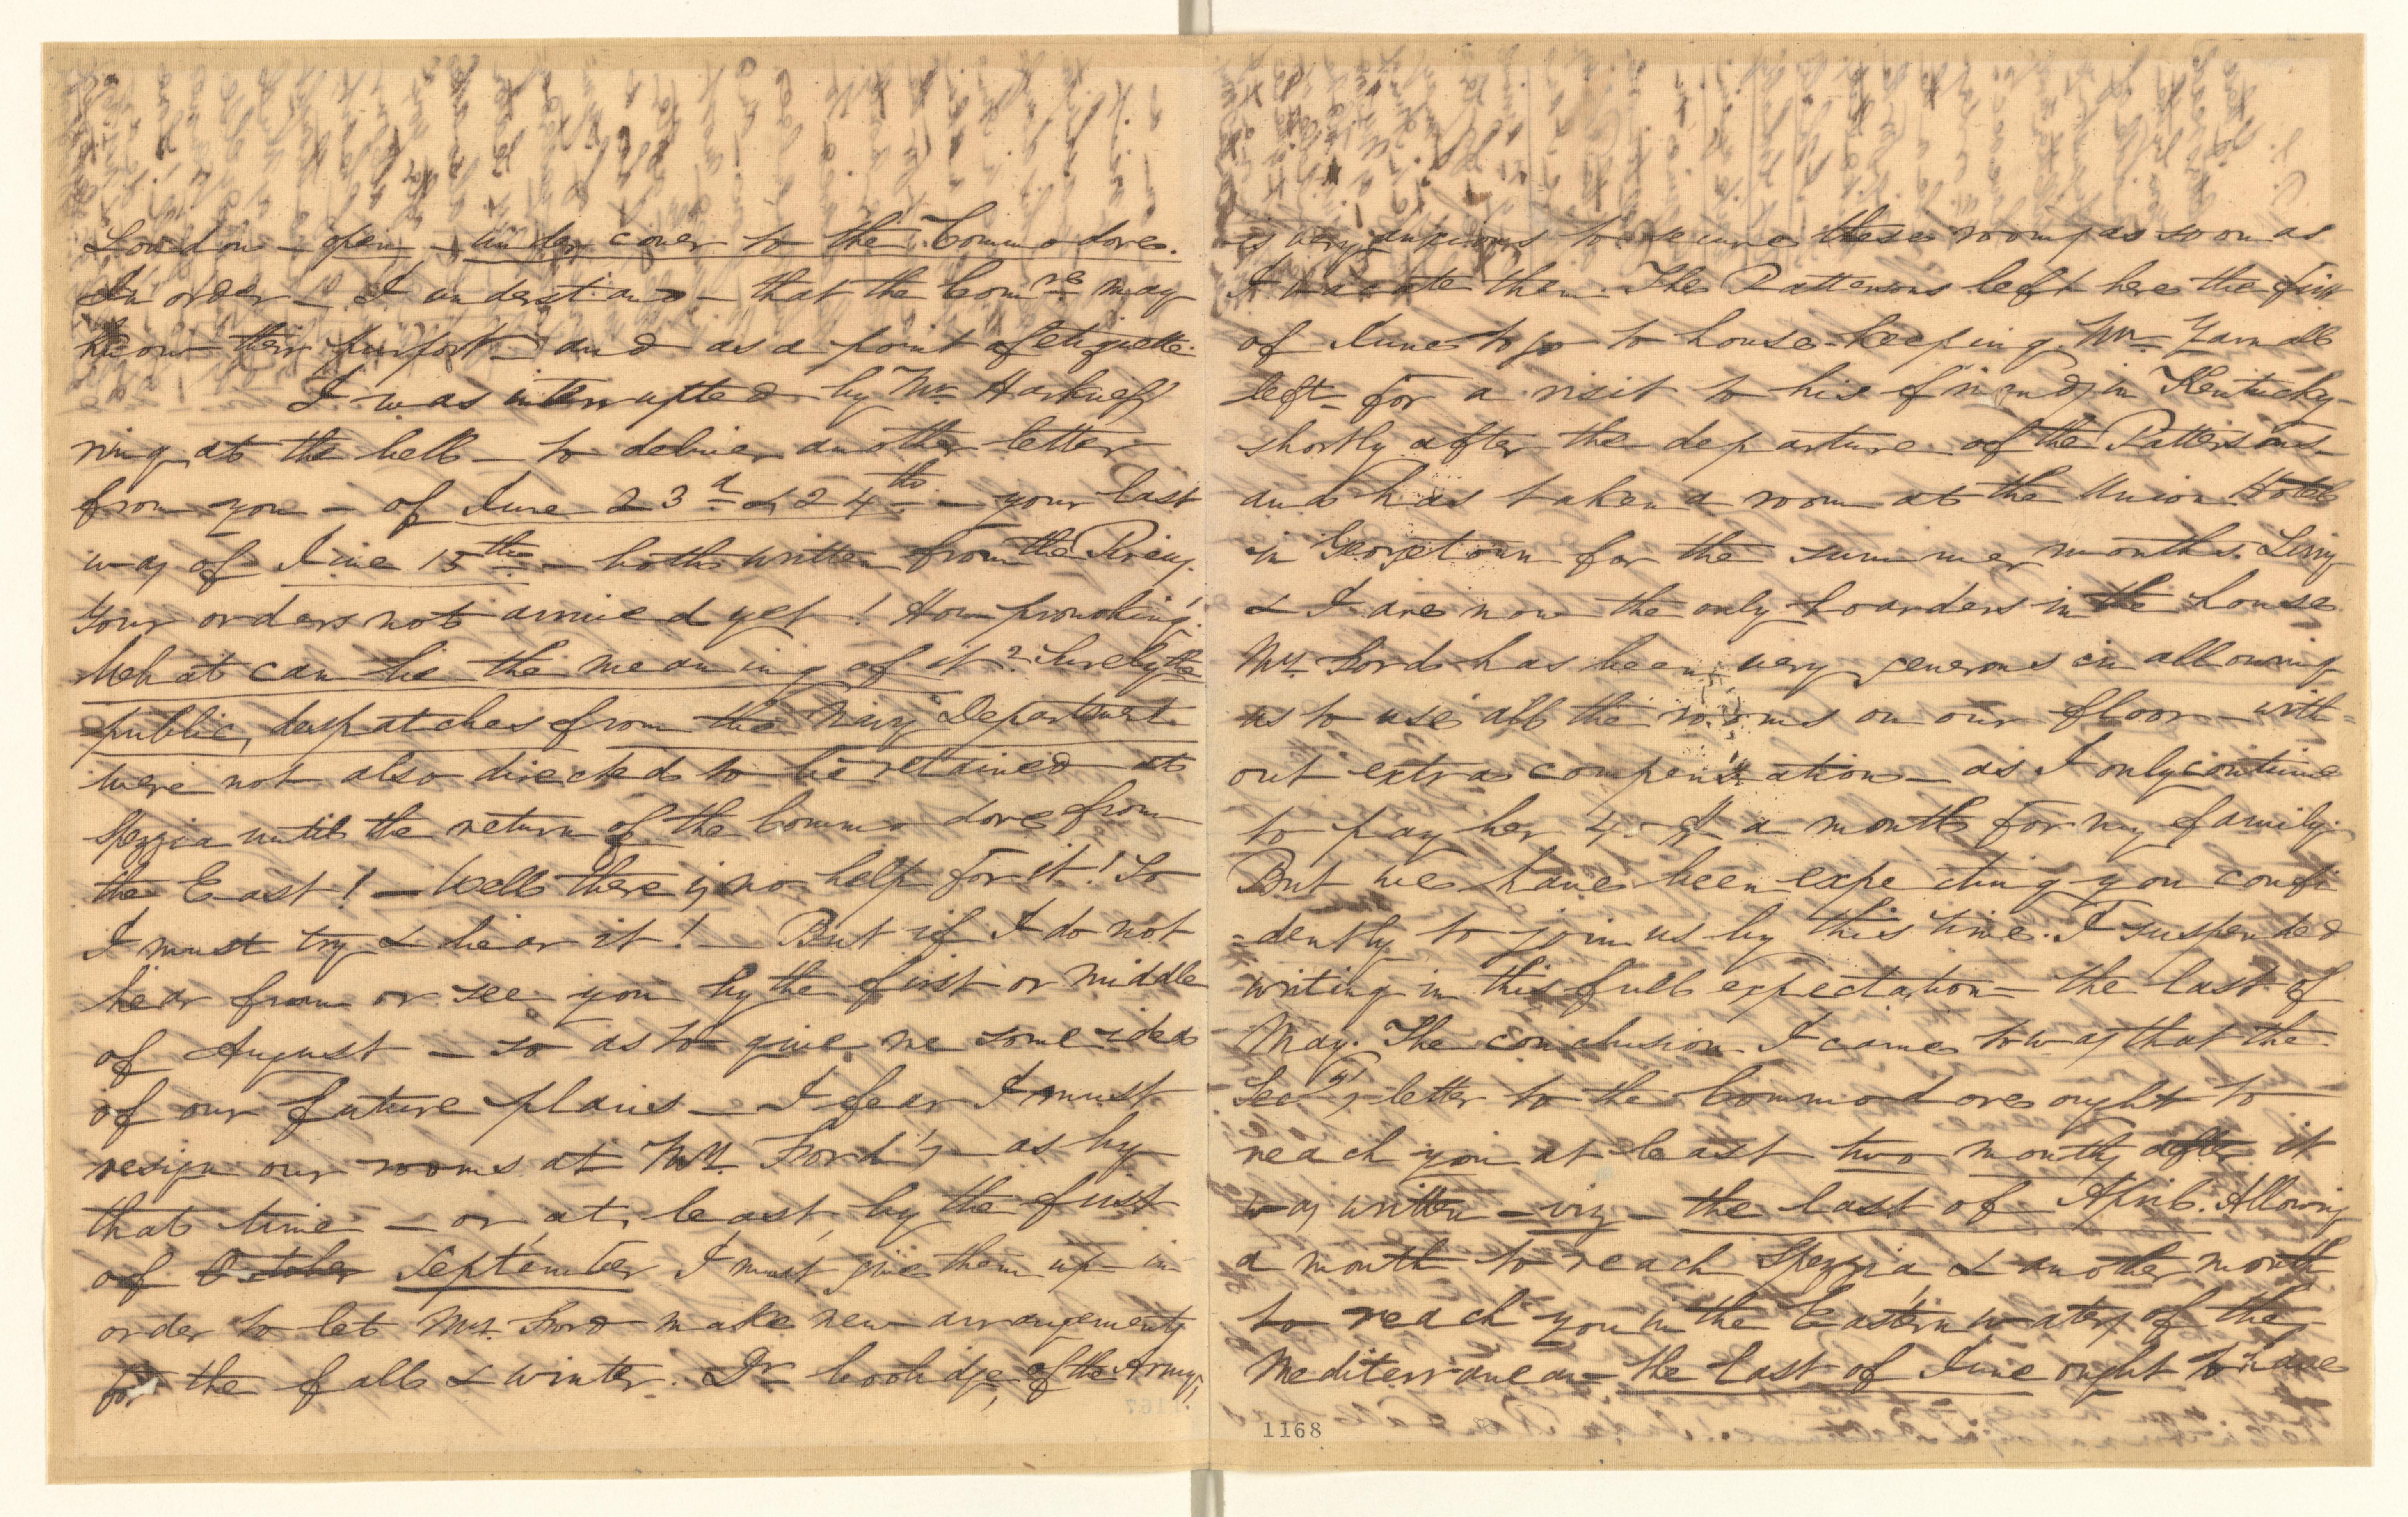 London - open - under cover to the Commodore.
In order - I understand - that the Comre may
know their purport and as a point of etiquette.
I was interrupted by Mr Harkness'
ring at the bell - to deliver another letter
from you - of June 23d & 24th - your last
was of June 15th - both written from the Pireus.
Your orders not arrived yet! How provoking!
What can be the meaning of it? Surely the
public, despatches from the Navy Department
were not also directed to be retained at
Spezzia until the return of the Commodore from
the East! - Well there is no help for it! So
I must try & bear it! - But if I do not
hear from or see you by the first or middle
of August - so as to give me some idea
of our future plans - I fear I must
resign our rooms at Mrs. Ford's - as by
that time - or, at least, by the first
of October September I must give them up in
order to let Mrs. Ford make new arrangements
for the fall & winter. Dr Coolidge, of the Army,
is very anxious to secure these rooms as soon as
I vacate them. The Pattersons left here the first
of June to go to house-keeping. Mr. Yarnall
left - for a visit to his friends in Kentucky -
shortly after the departure of the Pattersons -
and has taken a room at the Union Hotel
in Georgetown for the summer months. Lizzy
& I are now the only boarders in the house.
Mrs. Ford has been very generous in allowing
us to use all the rooms on our floor - with=
out extra compensation - as I only continue
to pay her 45 $ a month for my family.
But we have been expecting you confi
=dently to join us by this time. I suspended
writing in this full expectation - the last of
May. The conclusion I came to was that the
Secy's letter to the Commodore ought to
reach you at least two months after it
was written - viz - the last of April. Allowing
a month to reach Spezzia, & another month
to reach you in the Eastern waters of the
Mediterranean - the last of June ought to have
1168